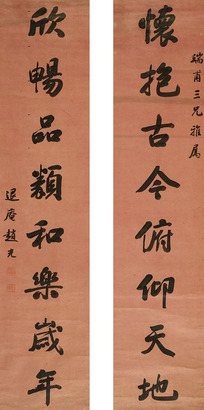 瑞甫三兄雅属
懷抱古今俯仰天地
欣暢品類和樂歲年
退庵趙光